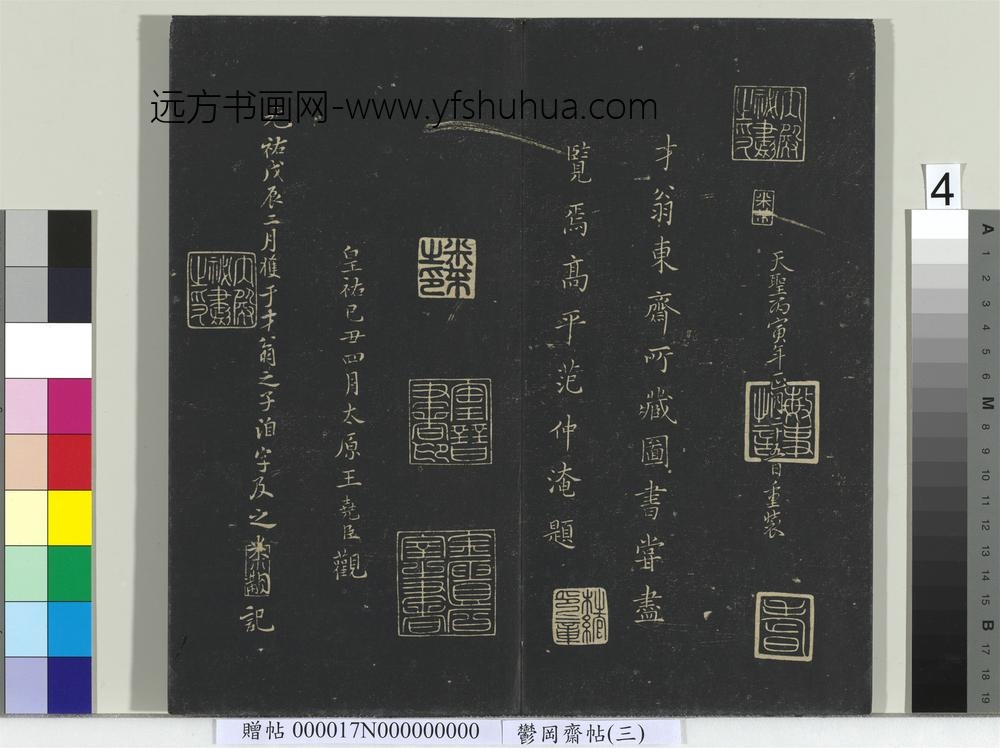 远方书画网-www.yfshuhua.com
天聖丙寅年
百重裝
才翁東齋所藏圖書嘗盡
覽焉高平范仲淹題
皇祐己丑四月太原王堯臣觀
元祐戊辰二月獲于才翁之子洎字及之米黻記
米黻之印
4
A 1 2 3 4 5 6 M 8 9 10 11 12 13 14 15 B 17 18 19
贈帖 000017N000000000
鬱岡齋帖(三)